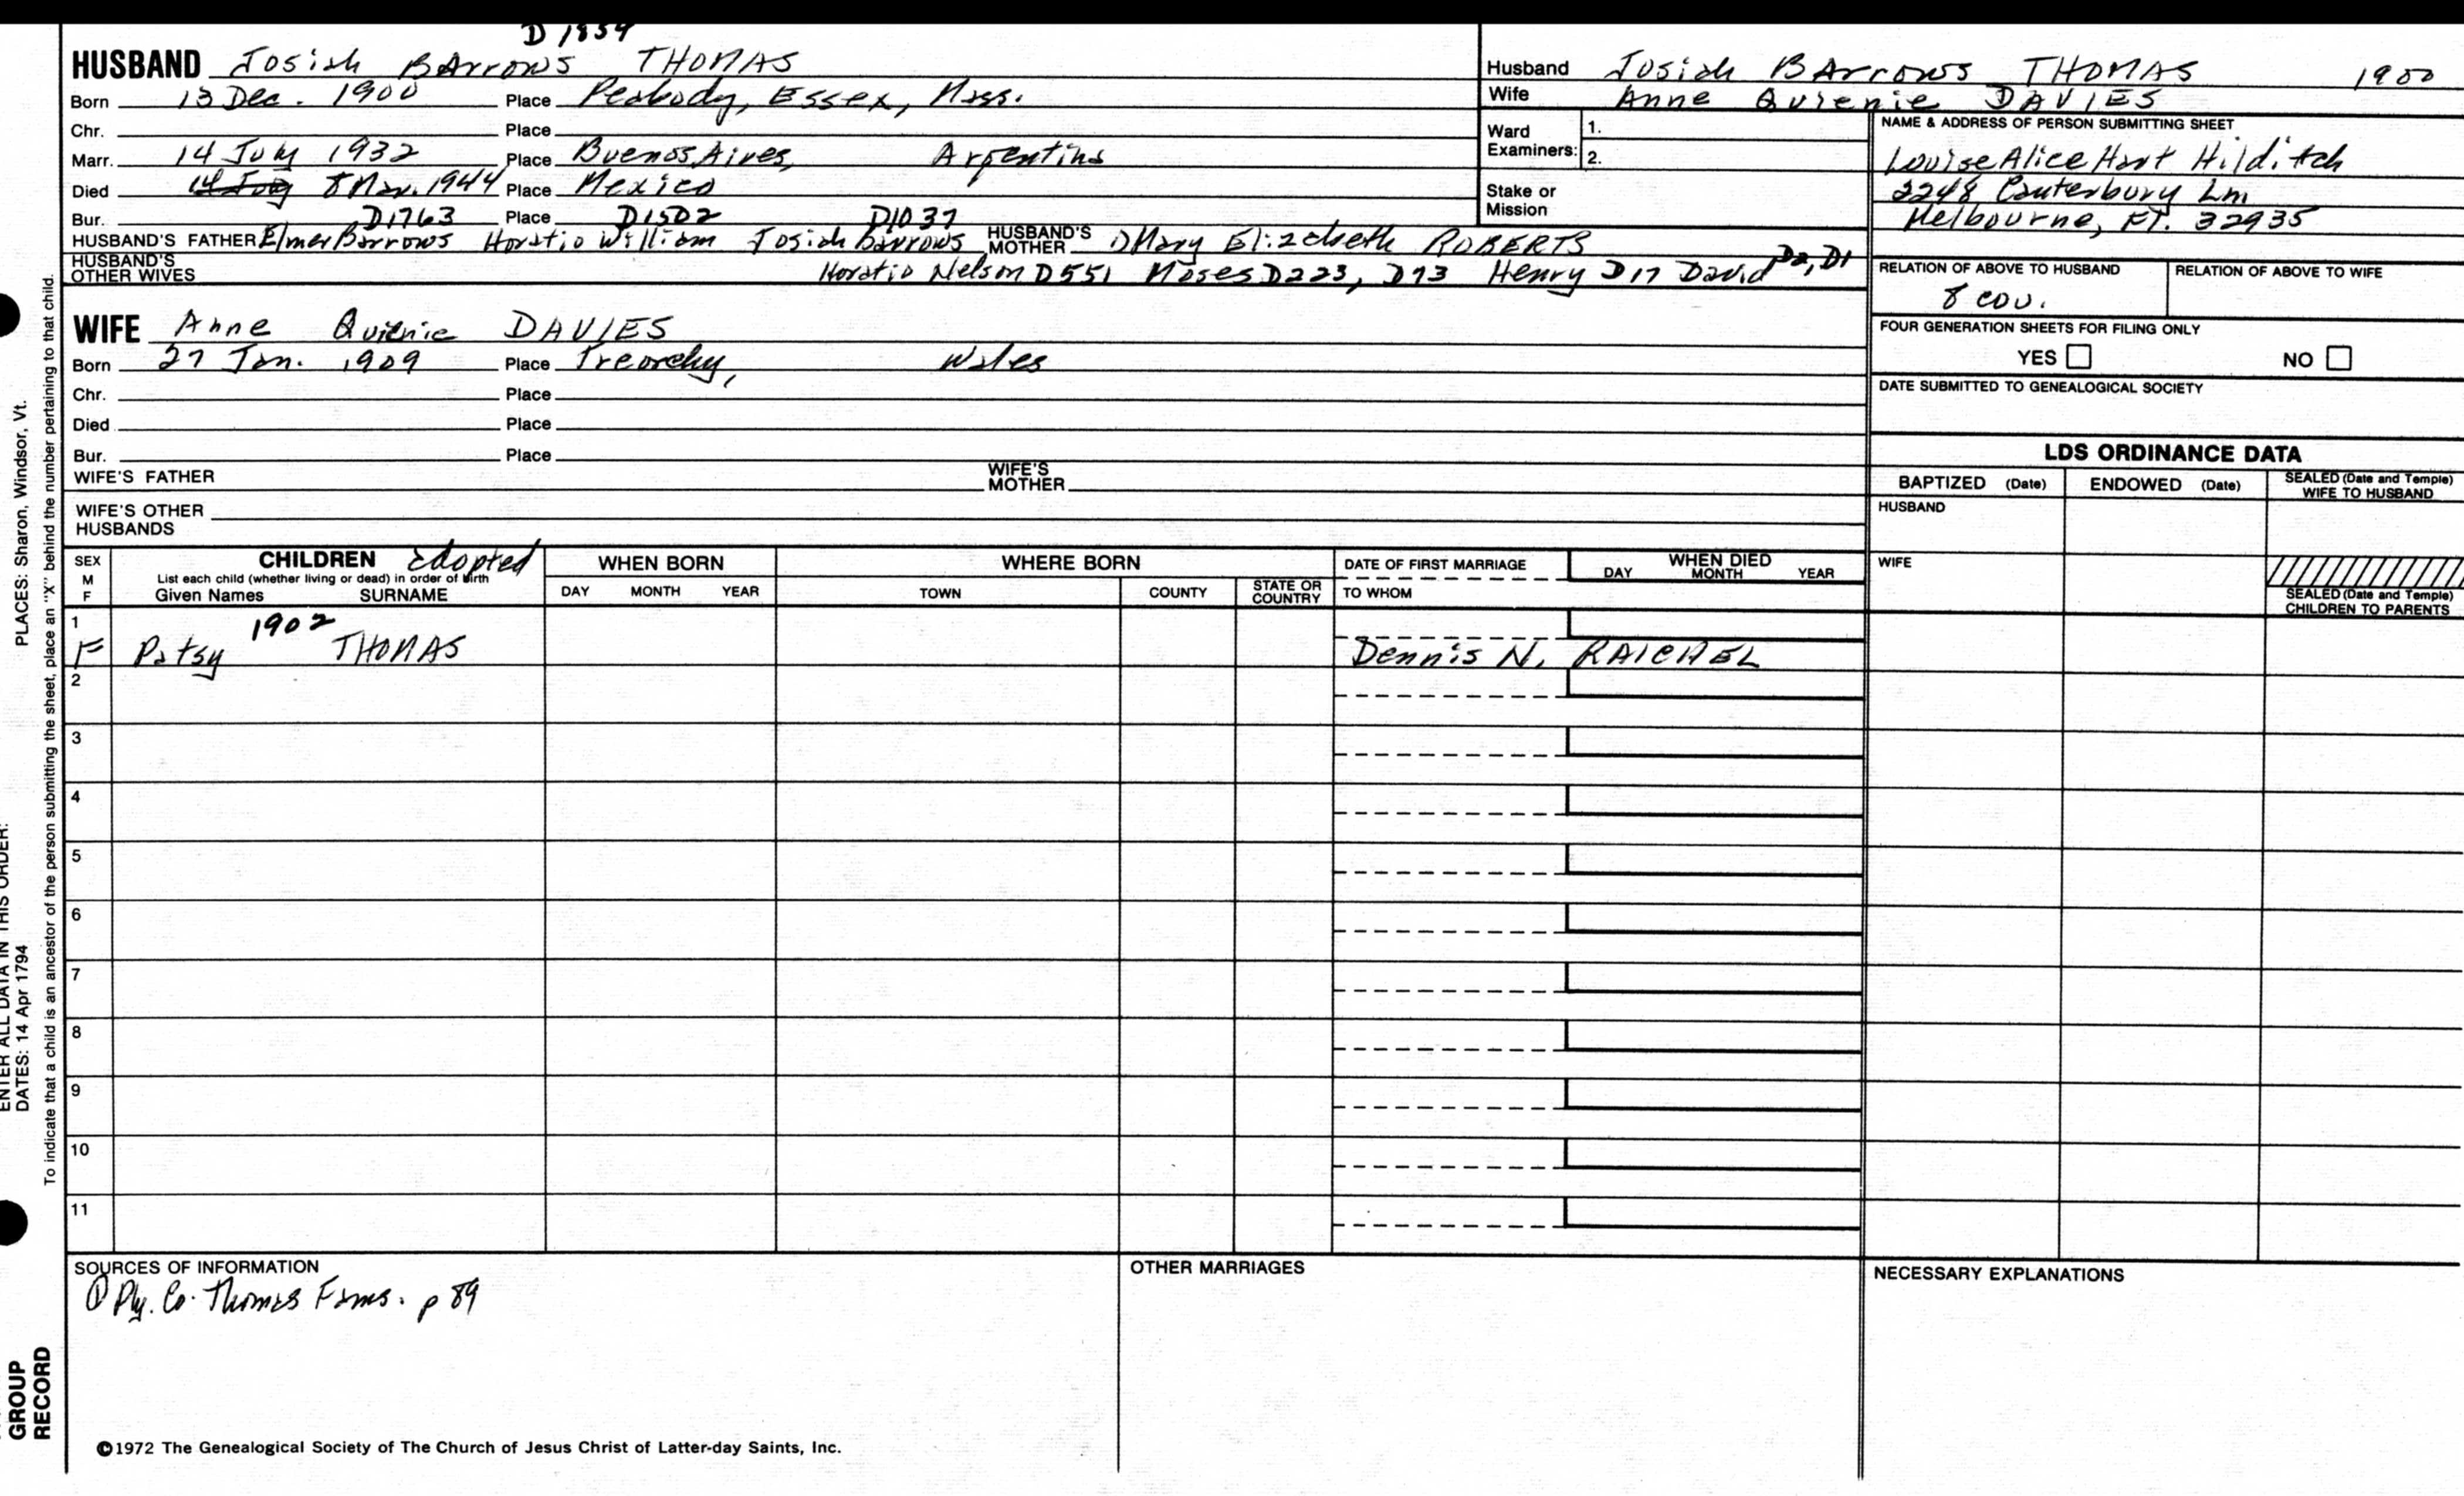 D 1854
HUSBAND Josiah Barrows THOMAS
Born 13 Dec. 1900 Place Peabody, Essex, Mass.
Chr. Place
Marr. 14 July 1932 Place Buenos Aires, Argentina
Died 14 July 8 Mar. 1944 Place Mexico
Bur. D1763 Place D1502 D1037
HUSBAND'S FATHER Elmer Barrows Horatio William Josiah Barrows HUSBAND'S MOTHER Mary Elizabeth ROBERTS
HUSBAND'S OTHER WIVES Horatio Nelson D551 Moses D223, D73 Henry D17 David D2, D1
WIFE Anne Quienie DAVIES
Born 27 Jan. 1909 Place Treorchy, Wales
Chr. Place
Died Place
Bur. Place
WIFE'S FATHER WIFE'S MOTHER
WIFE'S OTHER HUSBANDS
Husband Josiah Barrows THOMAS 1900
Wife Anne Quienie DAVIES
Ward Examiners: 1.
2.
Stake or Mission
NAME & ADDRESS OF PERSON SUBMITTING SHEET
Louise Alice Hart Hilditch
2248 Canterbury Ln
Melbourne, Fl. 32935
RELATION OF ABOVE TO HUSBAND RELATION OF ABOVE TO WIFE
8 cou.
FOUR GENERATION SHEETS FOR FILING ONLY
YES NO
DATE SUBMITTED TO GENEALOGICAL SOCIETY
LDS ORDINANCE DATA
BAPTIZED (Date) ENDOWED (Date) SEALED (Date and Temple) WIFE TO HUSBAND
HUSBAND
WIFE
SEALED (Date and Temple) CHILDREN TO PARENTS
SEX M F CHILDREN adopted WHEN BORN WHERE BORN DATE OF FIRST MARRIAGE WHEN DIED
List each child (whether living or dead) in order of birth
Given Names SURNAME DAY MONTH YEAR TOWN COUNTY STATE OR COUNTRY TO WHOM DAY MONTH YEAR
1 1902
F Patsy THOMAS Dennis N. RAICHEL
2
3
4
5
6
7
8
9
10
11
SOURCES OF INFORMATION
① Ply. Co. Thomas Fams. p 89
OTHER MARRIAGES
NECESSARY EXPLANATIONS
©1972 The Genealogical Society of The Church of Jesus Christ of Latter-day Saints, Inc.
ENTER ALL DATA IN THIS ORDER:
DATES: 14 Apr 1794 PLACES: Sharon, Windsor, Vt.
To indicate that a child is an ancestor of the person submitting the sheet, place an "X" behind the number pertaining to that child.
GROUP
RECORD